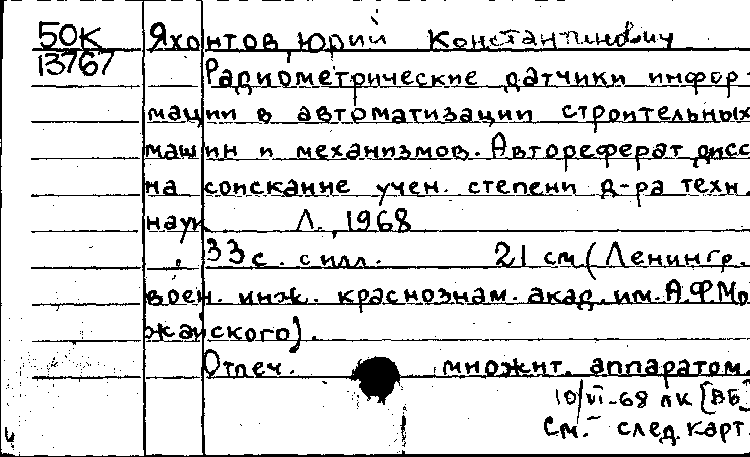 50К Яхонтов, Юрий Константинович
13767 Радиометрические датчики инфор-
мации в автоматизации строительных
машин и механизмов. Автореферат дисс
на соискание учен. степени д-ра техн.
наук. Л., 1968
33с. с илл. 21 см (Ленингр.
воен. инж. краснознам. акад. им. А.Ф.Мо
жайского).
Отпеч. множит. аппаратом.
10/VI-68 ЛК [ВБ
См. след. карт.